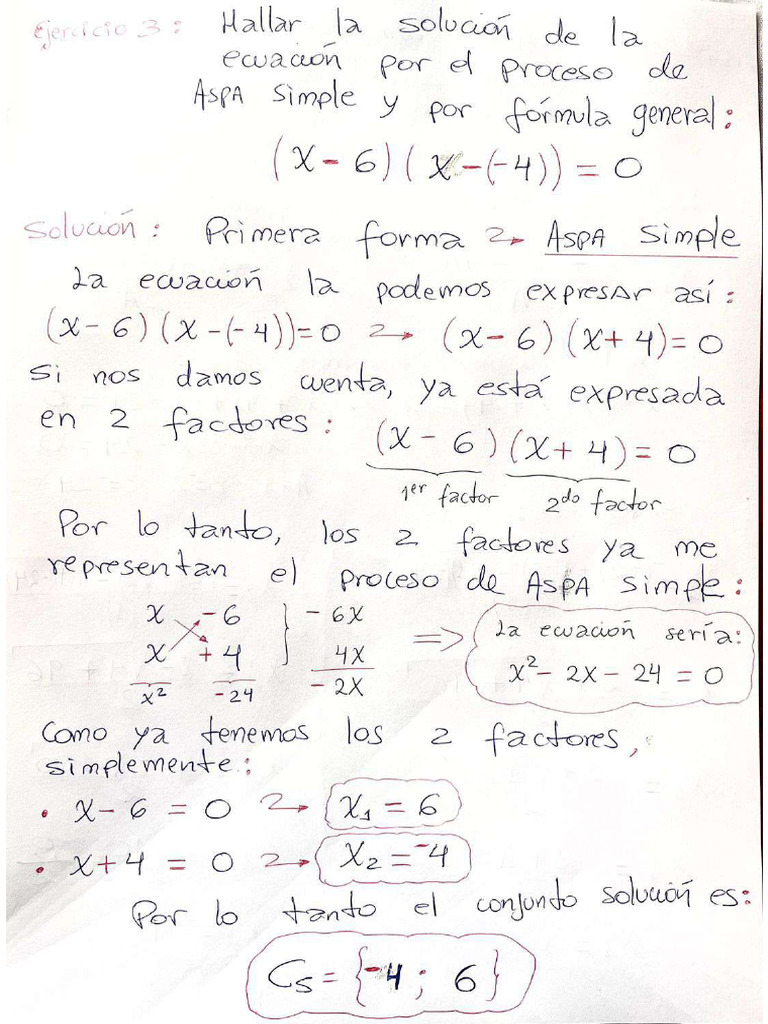 Ejercicio 3: Hallar la solución de la
ecuación por el proceso de
ASPA simple y por fórmula general:
(x - 6)(x - (-4)) = 0
Solución: Primera forma → ASPA simple
La ecuación la podemos expresar así:
(x - 6)(x - (-4)) = 0 → (x - 6)(x + 4) = 0
Si nos damos cuenta, ya está expresada
en 2 factores: (x - 6)(x + 4) = 0
1er factor 2do factor
Por lo tanto, los 2 factores ya me
representan el proceso de ASPA simple:
x -6 } -6x
x +4 4x
x² -24 -2x
⇒ La ecuación sería:
x² - 2x - 24 = 0
Como ya tenemos los 2 factores,
simplemente:
• x - 6 = 0 → x₁ = 6
• x + 4 = 0 → x₂ = -4
Por lo tanto el conjunto solución es:
Cs = {-4; 6}